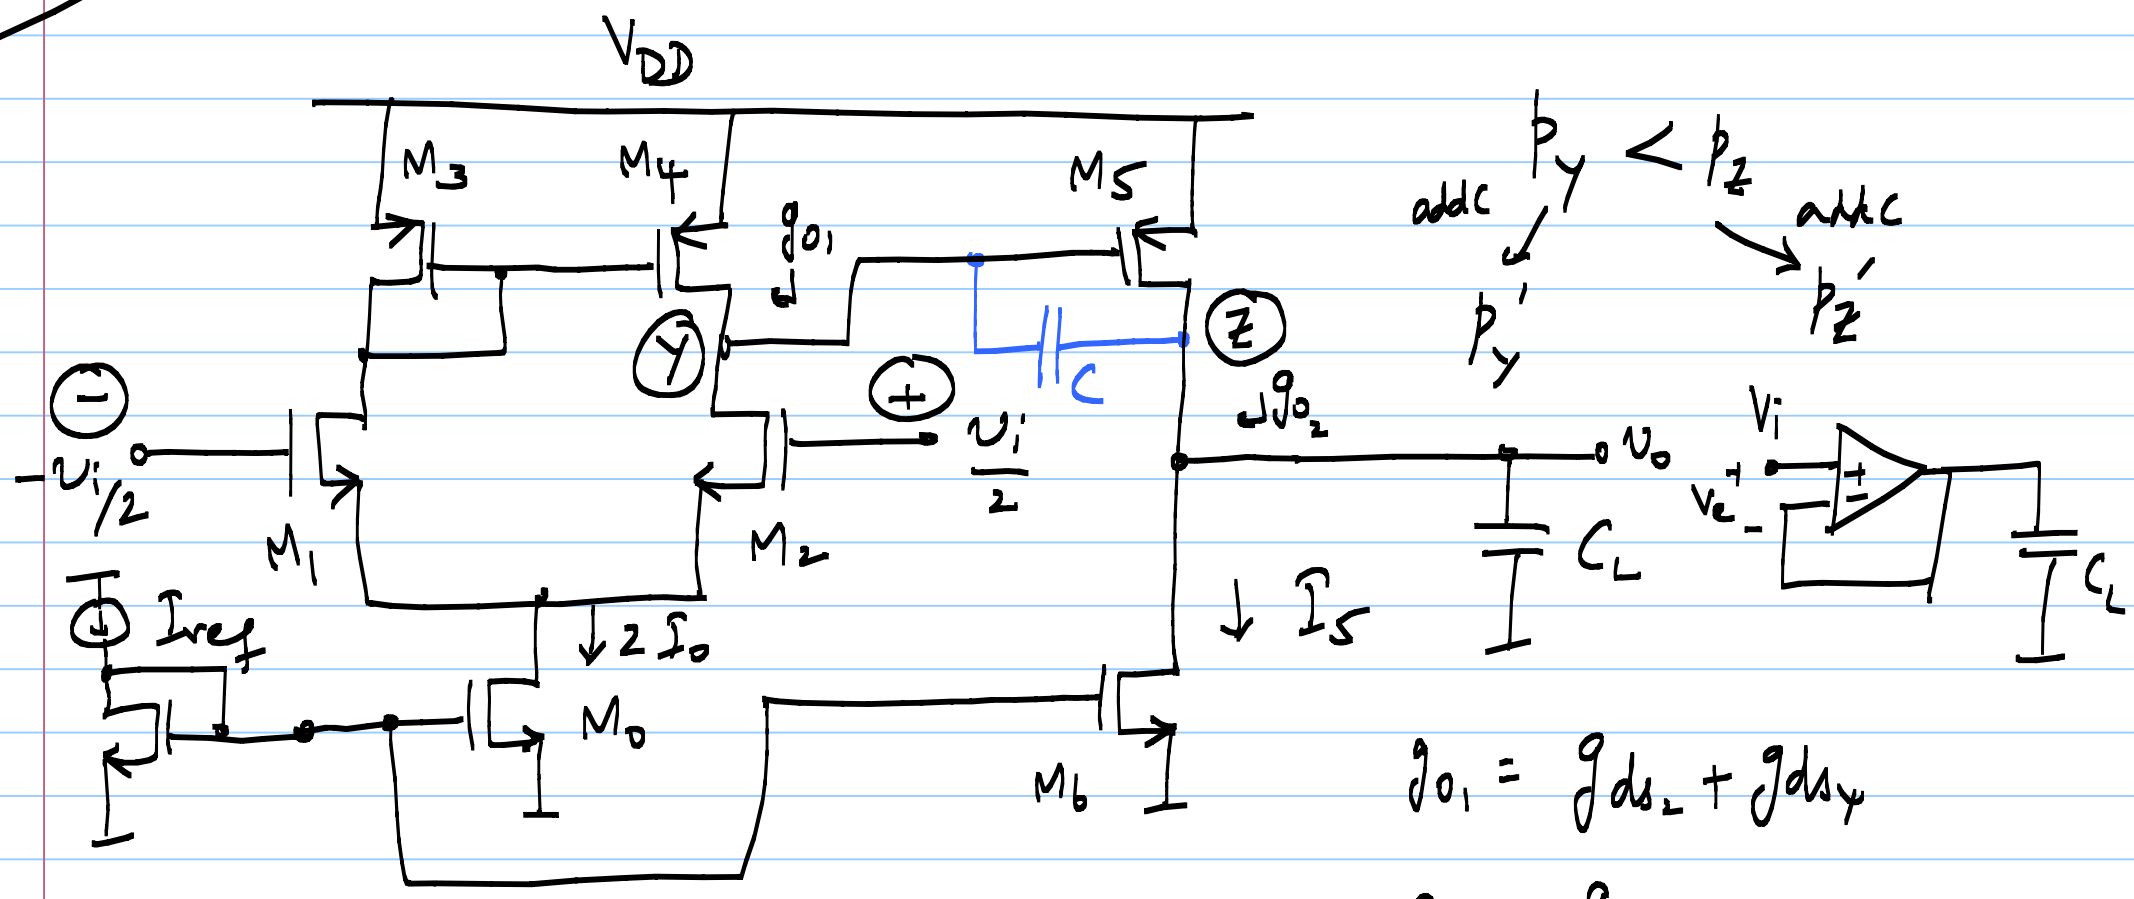 V_DD
M3 M4 M5
g_o1
p_y < p_z
add C add C
p_y' p_z'
Y Z
C
−
+
g_o2
−v_i/2
v_i/2
v_o
V_i
v_e + −
+ −
M1 M2
C_L
C_L
I_ref
2 I_0
I_5
M0
M6
g_o1 = g_ds2 + g_ds4